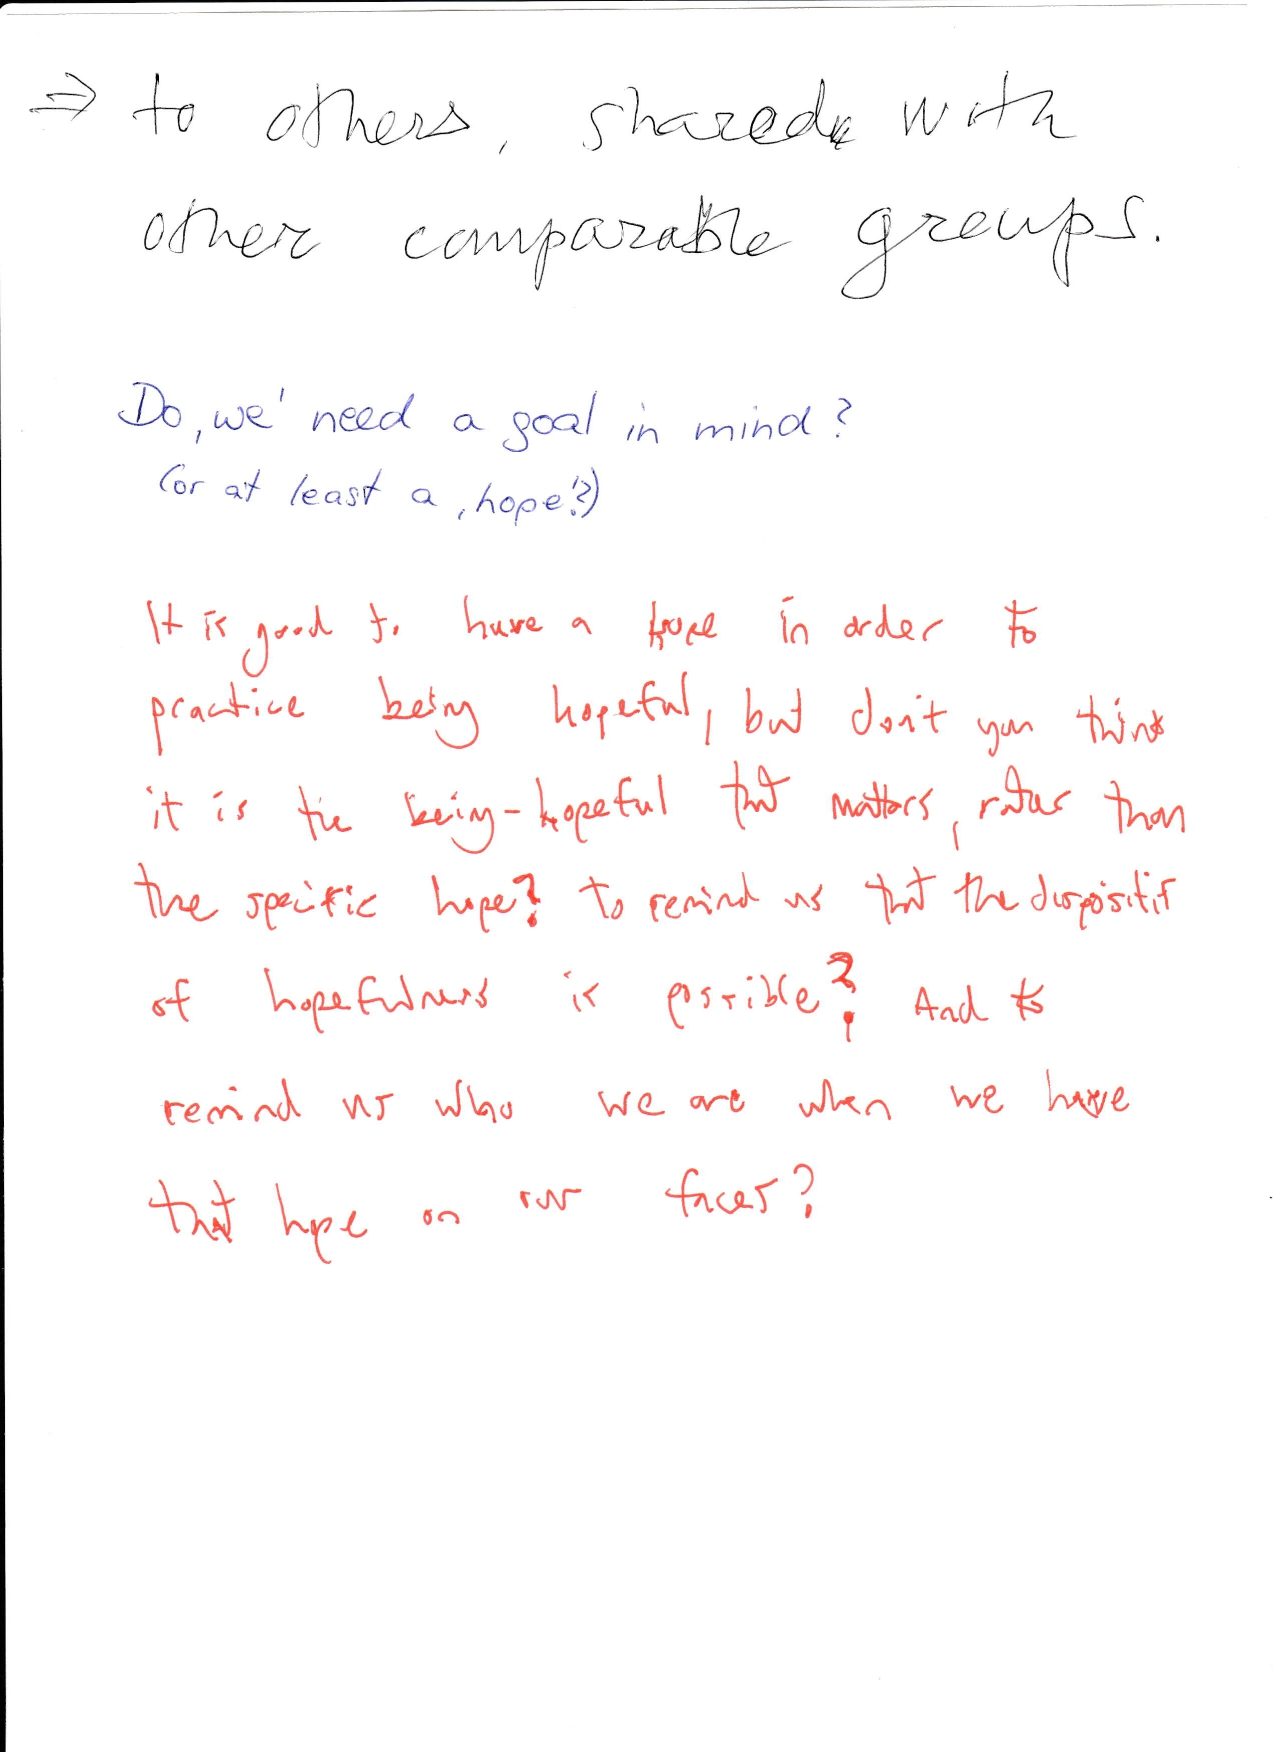 ⇒ to others, shared with
other comparable groups.
Do ‚we' need a goal in mind?
(or at least a ‚hope'?)
It is good to have a hope in order to
practice being hopeful, but don't you think
it is the being-hopeful that matters, rather than
the specific hope? To remind us that the dispositif
of hopefulness is possible? And to
remind us who we are when we have
that hope on our faces?